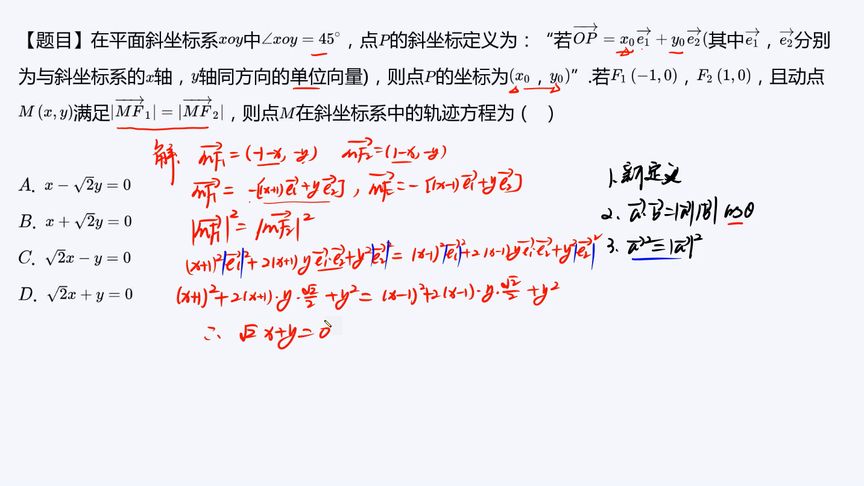 【题目】在平面斜坐标系xoy中∠xoy = 45°，点P的斜坐标定义为：“若$\overrightarrow{OP} = x_0\overrightarrow{e_1} + y_0\overrightarrow{e_2}$(其中$\overrightarrow{e_1}$，$\overrightarrow{e_2}$分别
为与斜坐标系的x轴，y轴同方向的单位向量)，则点P的坐标为$(x_0，y_0)$”.若$F_1(-1,0)$，$F_2(1,0)$，且动点
M(x,y)满足$|\overrightarrow{MF}_1| = |\overrightarrow{MF}_2|$，则点M在斜坐标系中的轨迹方程为（ ）
A. $x - \sqrt{2}y = 0$
B. $x + \sqrt{2}y = 0$
C. $\sqrt{2}x - y = 0$
D. $\sqrt{2}x + y = 0$
解: $\overrightarrow{MF_1} = (-1-x, -y)$ $\overrightarrow{MF_2} = (1-x, -y)$
$\overrightarrow{MF_1} = -[(x+1)\overrightarrow{e_1} + y\overrightarrow{e_2}]$, $\overrightarrow{MF_2} = -[(x-1)\overrightarrow{e_1} + y\overrightarrow{e_2}]$
$|\overrightarrow{MF_1}|^2 = |\overrightarrow{MF_2}|^2$
$(x+1)^2|\overrightarrow{e_1}|^2 + 2(x+1)y\overrightarrow{e_1}\cdot\overrightarrow{e_2} + y^2|\overrightarrow{e_2}|^2 = (x-1)^2|\overrightarrow{e_1}|^2 + 2(x-1)y\overrightarrow{e_1}\cdot\overrightarrow{e_2} + y^2|\overrightarrow{e_2}|^2$
$(x+1)^2 + 2(x+1)\cdot y\cdot\frac{\sqrt{2}}{2} + y^2 = (x-1)^2 + 2(x-1)\cdot y\cdot\frac{\sqrt{2}}{2} + y^2$
∴ $\sqrt{2}x + y = 0$
1. 新定义
2. $\overrightarrow{a}\cdot\overrightarrow{b} = |\overrightarrow{a}||\overrightarrow{b}|\cos\theta$
3. $\overrightarrow{a}^2 = |\overrightarrow{a}|^2$